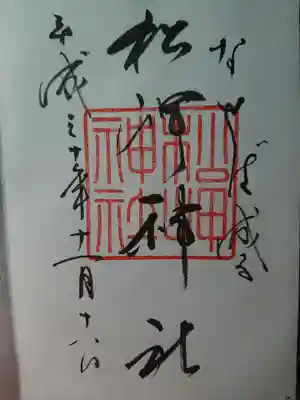 なせば成る
松岬神社
平成三十年十一月十八日
松岬
神社